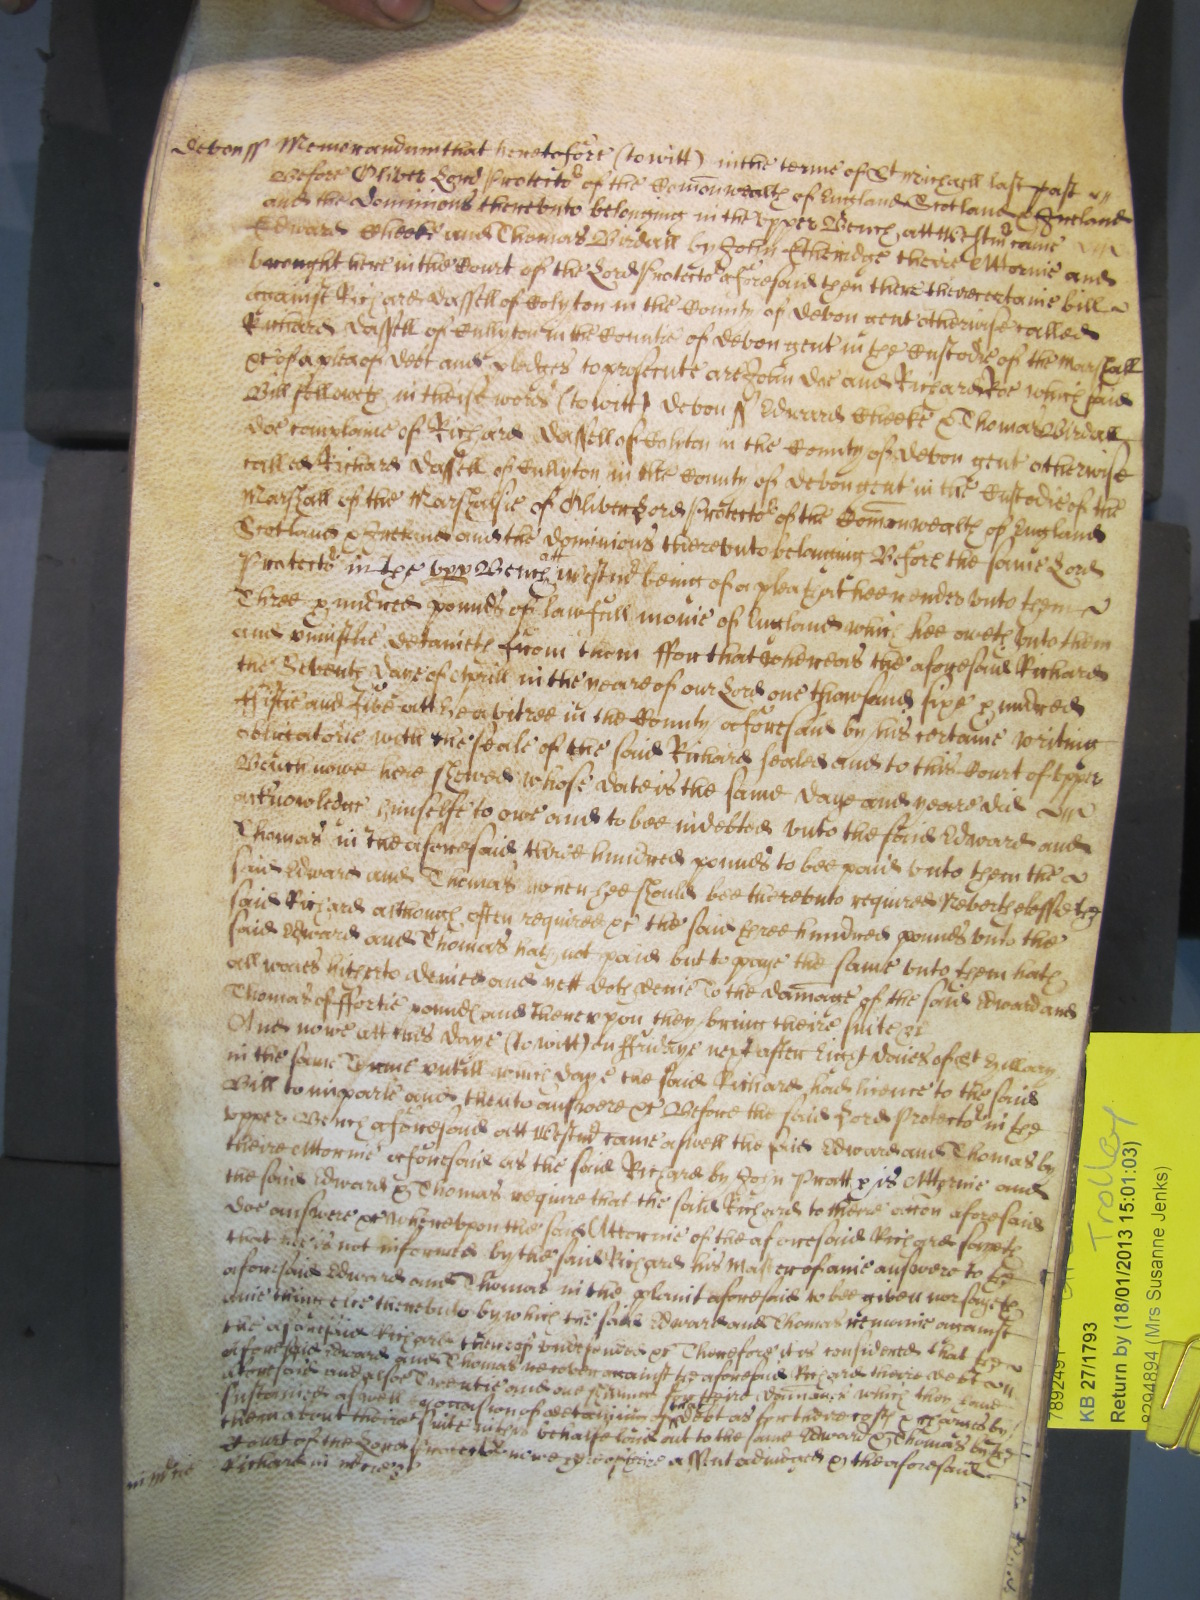 Devon ss Memorandum that heretofore (to witt) in the terme of St Michaell last past
Before Oliver Lord Protector of the Comonwealth of England Scotland & Ireland
and the Dominions thereunto belonging in the Upper Bench att Westmr came
Edward Cheeke and Thomas Birdall by John Etheridge theire Attornie and
brought here in the Court of the Lord Protector aforesaid then there theire certaine bill
against Richard Dassell of Colyton in the County of Devon gent otherwise called
Richard Dassell of Cullyton in the Countie of Devon gent in the Custodie of the Marshall
&c of a plea of debt and pledges to prosecute are John Doe and Richard Roe which said
Bill followeth in theise words (to witt) Devon ss Edward Cheeke & Thomas Birdall
doe complaine of Richard Dassell of Coliton in the County of Devon gent otherwise
called Richard Dassell of Cullyton in the County of Devon gent in the Custodie of the
Marshall of the Marshalsie of Oliver Lord Protector of the Comonwealth of England
Scotland & Ireland and the Dominions thereunto belonging Before the same Lord
Protector in the upp Bench att Westmr being of a plea that hee render unto them
Three hundred pounds of lawfull monie of England which hee oweth unto them
and uniustlie detaineth from them ffor that whereas the aforesaid Richard
the Seventh daye of Aprill in the yeare of our Lord one thowsand sixe hundred
ffiftie and five att Heavitree in the County aforesaid by his certaine writing
obligatorie with the seale of the said Richard sealed and to this Court of Upper
Bench nowe here shewed whose date is the same daye and yeare did
acknowledge himselfe to owe and to bee indebted unto the said Edward and
Thomas in the aforesaid three hundred pounds to bee paid unto them the
said Edward and Thomas when hee should bee thereunto required Neverthelesse the
said Richard although often required &c the said three hundred pounds unto the
said Edward and Thomas hath not paid but to paye the same unto them hath
all waies hitherto denied and yett doth denie To the damage of the said Edward and
Thomas of ffortie pounds and thereupon they bring theire suite &c
And nowe att this daye (to witt) on ffridaye next after Eight daies of St Hillary
in the same Terme untill which daye the said Richard had licence to the said
Bill to imparle and then to answere &c Before the said Lord Protector in the
upper Bench aforesaid att Westmr came aswell the said Edward and Thomas by
theire Attornie aforesaid as the said Richard by John Pratt his Attornie and
the said Edward & Thomas require that the said Richard to theire accon aforesaid
doe answere &c Whereupon the said Attornie of the aforesaid Richard sayeth
that hee is not informed by the said Richard his Master of anie answere to the
aforesaid Edward and Thomas in the plaint aforesaid to bee given nor sayeth
anie thinge else thereunto by which the said Edward and Thomas remaine against
the aforesaid Richard thereof undefended &c Therefore it is considered that the
aforesaid Edward and Thomas recover against the aforesaid Richard theire debt
aforesaid and alsoe Twentie and one shillings for theire damages which they have
sustained aswell by occasion of detaining that debt as for theire costs & charges by
them about theire suite in this behalfe laid out to the same Edward & Thomas by the
Court of the Lord Protector nowe here of theire assent adiudged & the aforesaid
in mercie Richard in mercie &c
KB 27/1793
Return by (18/01/2013 15:01:03)
8294894 (Mrs Susanne Jenks)
Trolley